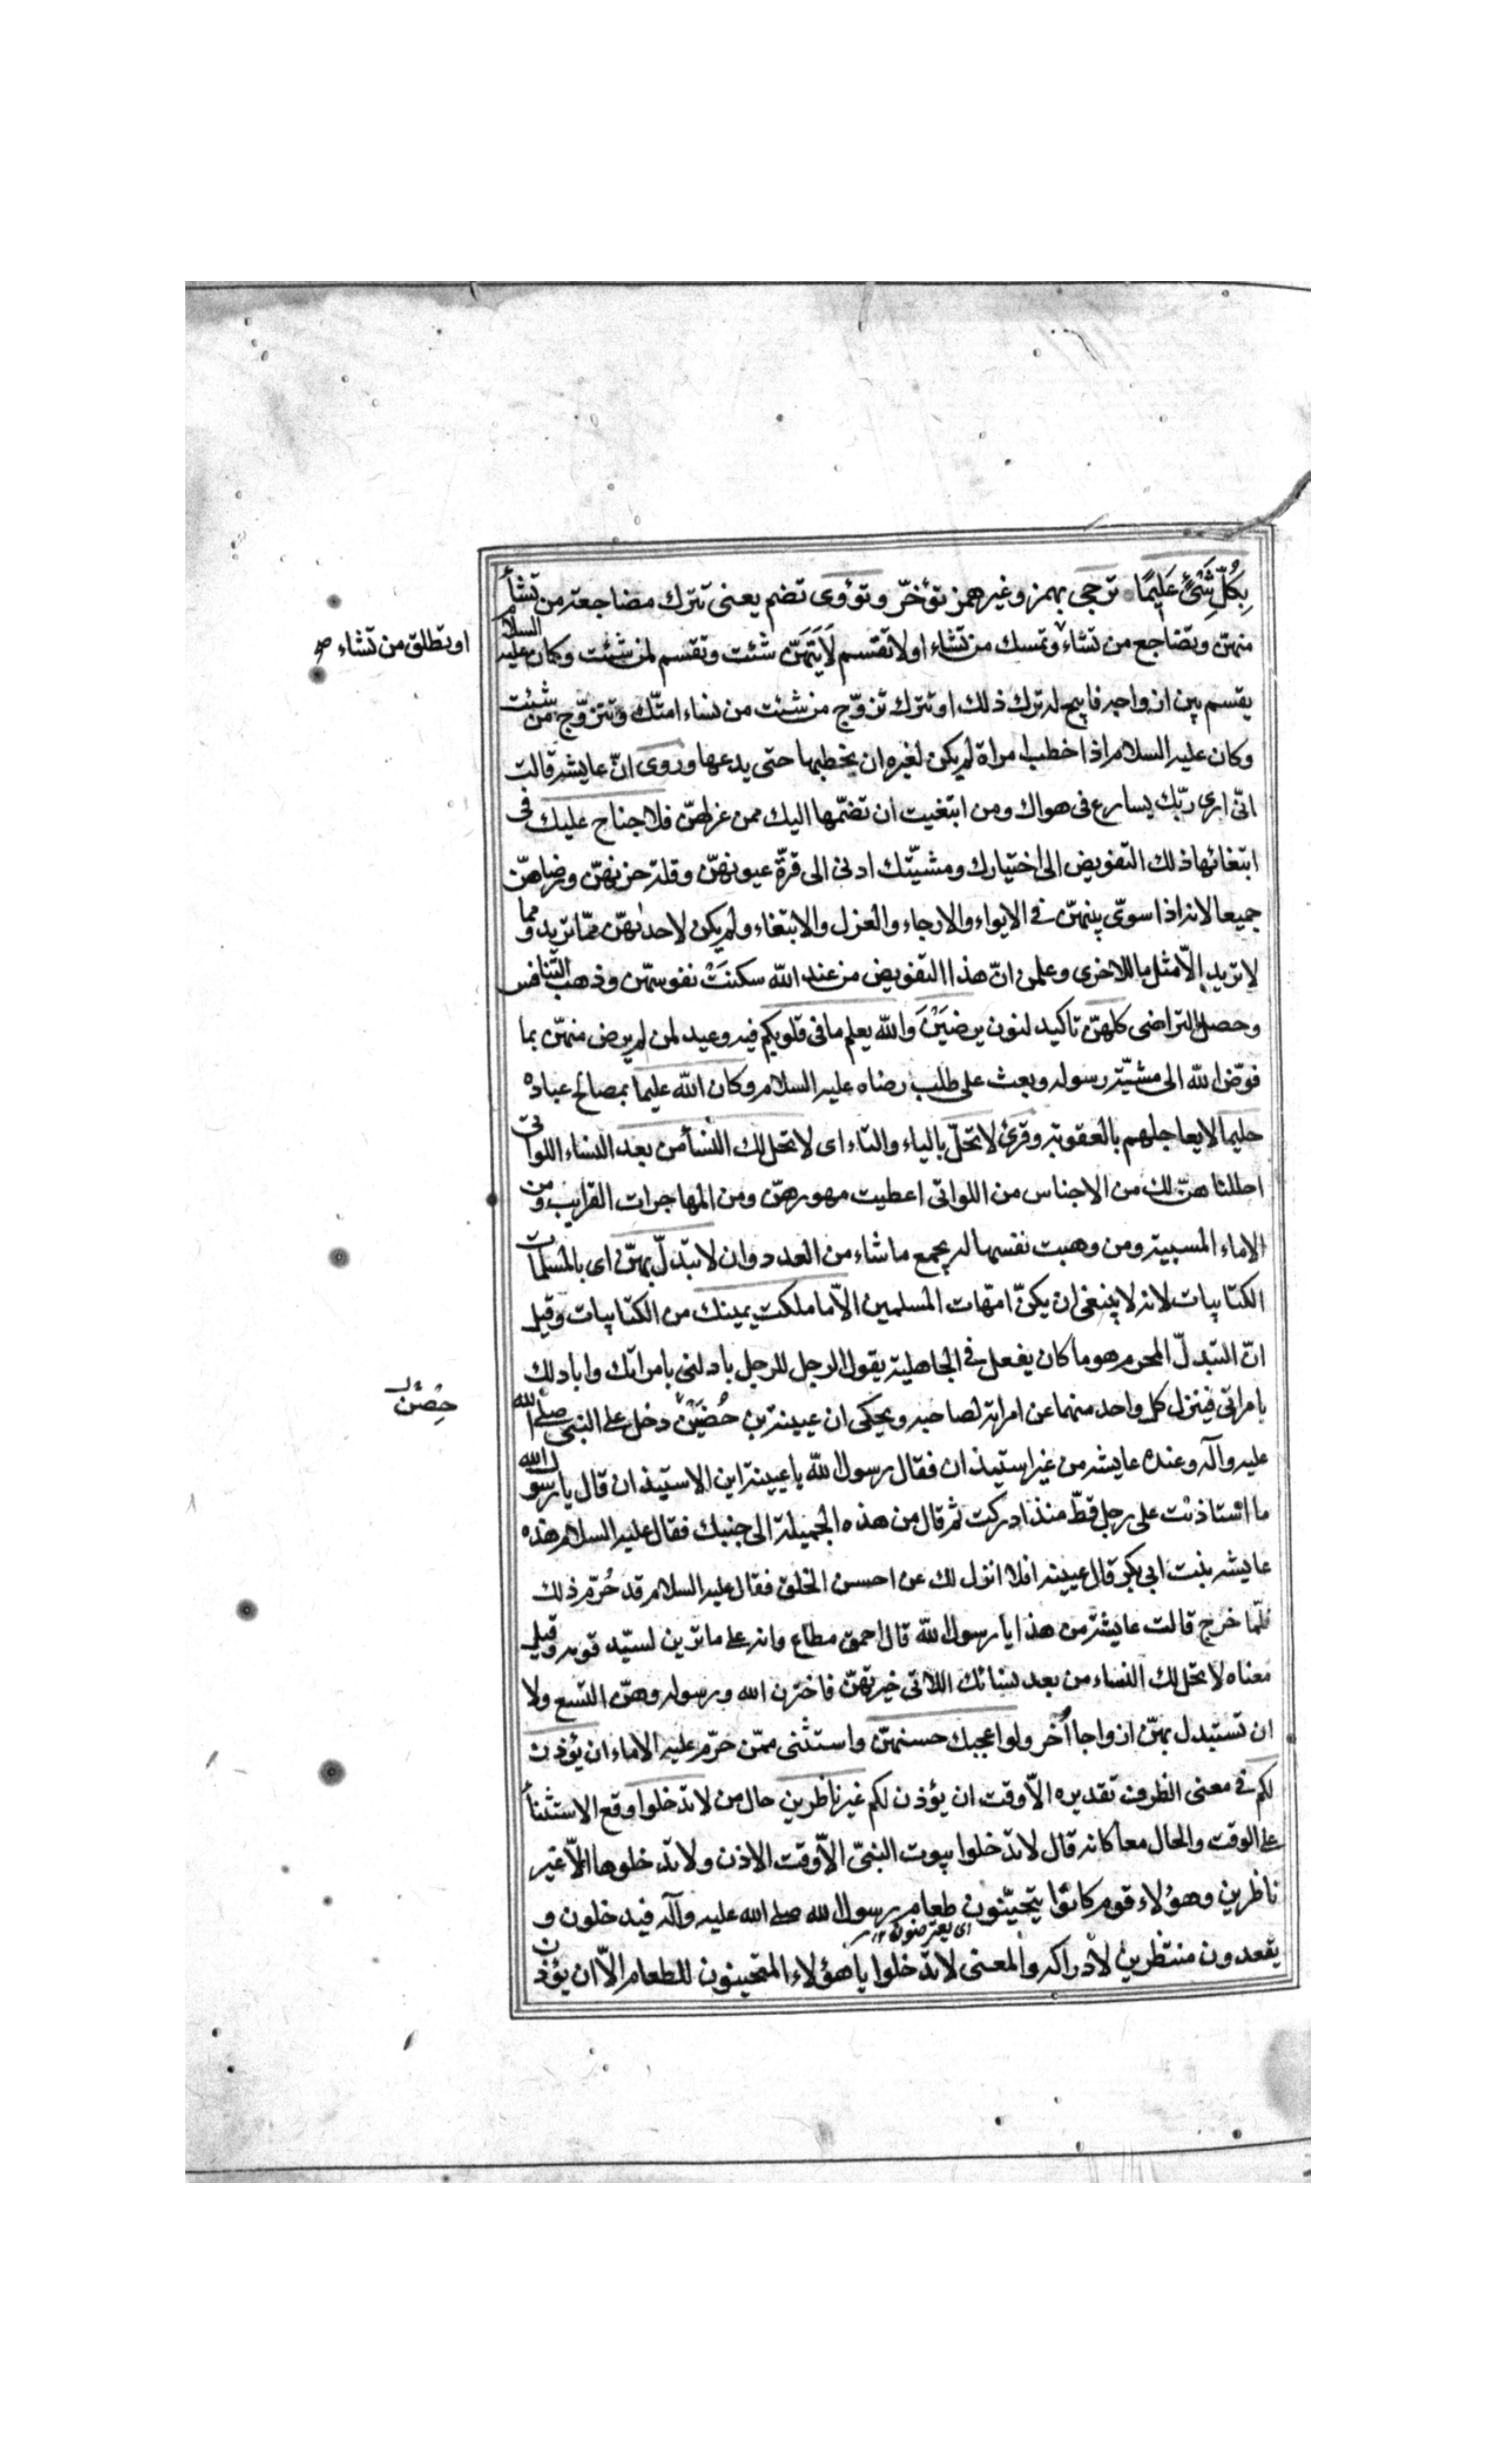 بِكُلِّ شَیْئٍ عَلِيمًا ترجى بهمز وغير همز تؤخّر وتؤوى تضم يعنى تترك مضاجعة من تشأ
منهنّ وتضاجع من تشاء وتمسك من تشاء او لا تقسم لايّتهنّ شئت وتقسم لمن شئت وكان عليه السلام
او تطلق من تشاء صح
يقسم بين ازواجه فابيح له ترك ذلك او تترك تزوّج من شئت من نساء امتّك وتتزوّج من شئت
وكان عليه السلام اذا خطب امراة لم يكن لغيره ان يخطبها حتى يدعها وروى انّ عايشه قالت
انّى ارى ربّك يسارع فى هواك ومن ابتغيت ان تضمّها اليك ممن عزلهنّ فلا جناح عليك فى
ابتغائها ذلك التفويض الى اختيارك ومشيّتك ادنى الى قرّة عيونهنّ وقلة حزنهنّ ورضاهنّ
جميعا لانه اذا سوّى بينهنّ فى الايواء والارجاء والعزل والابتغاء ولم يكن لاحديهنّ ممّا تريد ومما
لا تريد الّا مثل ما للاخرى وعلمن انّ هذا التفويض من عند الله سكنت نفوسهنّ وذهب التنافس
وحصل التراضى كلهنّ تاكيد لنون يرضَيْنَ والله يعلم ما فى قلوبكم فيه وعيد لمن لم يرض منهنّ بما
فوّض الله الى مشيّة رسوله وبعث على طلب رضاه عليه السلام وكان الله عليما بمصالح عباده
حليما لا يعاجلهم بالعقوبة وقرئ لا تحلّ بالياء والتاء اى لا تحل لك النسأ من بعد النساء اللواتى
احللناهنّ لك من الاجناس من اللواتى اعطيت مهورهنّ ومن المهاجرات القرايب ومن
الاماء المسبية ومن وهبت نفسها له يجمع ما شاء من العدد وان لا تبدّل بهنّ اى بالمسلمات
الكتابيات لانه لا ينبغى ان يكنّ امّهات المسلمين الّا ما ملكت يمينك من الكتابيات وقيل
انّ التبدلّ المحرم هو ما كان يفعل فى الجاهلية يقول الرجل للرجل بادلنى بامراتك وابادلك
بامراتى فينزل كل واحد منهما عن امراته لصاحبه ويحكى ان عيينة بن حُضَيْن دخل على النبى صلى الله
حِصْن ل
عليه وآله وعنده عايشه من غير استيذان فقال رسول الله يا عيينة اين الاستيذان قال يا رسول الله
ما استاذنت على رجل قطّ منذ ادركت ثم قال من هذه الجميلة الى جنبك فقال عليه السلام هذه
عايشه بنت ابى بكر قال عيينه افلا انزل لك عن احسن الخلق فقال عليه السلام قد حُرّم ذلك
فلمّا خرج قالت عايشة من هذا يا رسول الله قال احمق مطاع وانه على ما ترين لسيّد قومه وقيل
معناه لا تحل لك النساء من بعد نسائك اللاتى خيرتهنّ فاخترن الله ورسوله وهنّ التسع ولا
ان تستبدل بهنّ ازواجا أُخر ولو اعجبك حسنهنّ واستثنى ممّن حرّم عليه الاماء ان يؤذن
لكم فى معنى الظرف تقديره الّا وقت ان يؤذن لكم غير ناظرين حال من لا تدخلوا وقع الاستثنأ
على الوقت والحال معا كانه قال لا تدخلوا بيوت النبىّ الّا وقت الاذن ولا تدخلوها الّا غير
ناظرين وهؤلاء قوم كانوا يتحيّنون طعام رسول الله صلى الله عليه وآله فيدخلون و
اى يعترضون ١٢
يقعدون منتظرين لادراكه والمعنى لا تدخلوا يا هؤلاء المتحينون للطعام الّا ان يؤذن